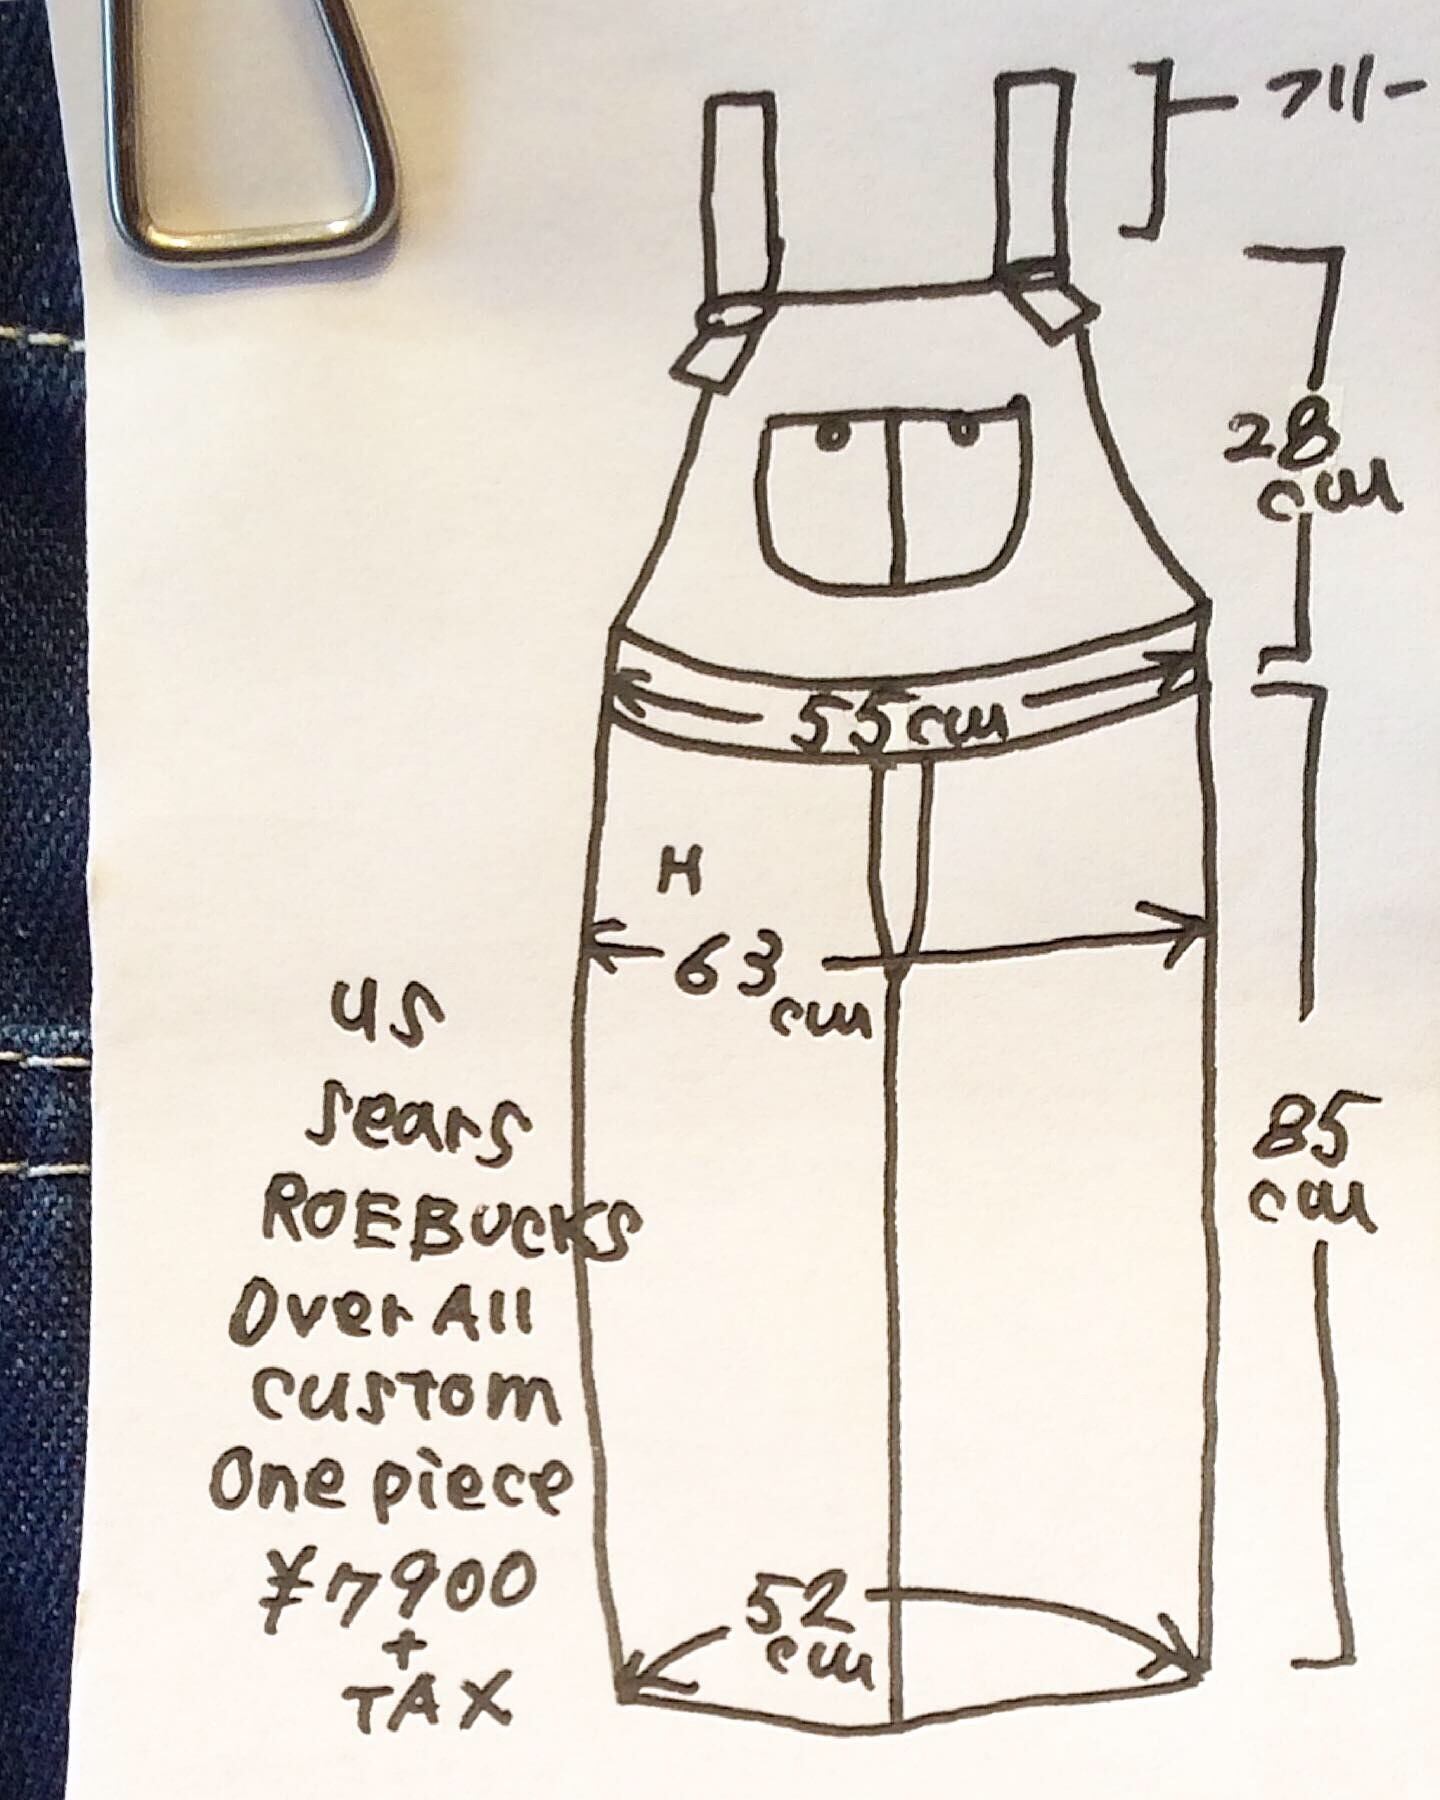 フリー
28
cm
55cm
H
63
cm
us
sears
ROEBUCKS
Over All
custom
One piece
¥7900
+
TAX
85
cm
52
cm